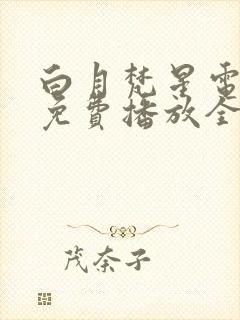 白月梵星電
免費播放全
茂奈子